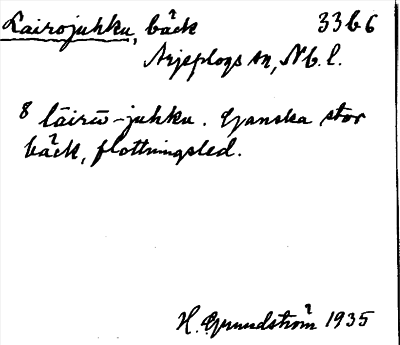 Lairojuhku, bäck 33b6
Arjeplogs sn, Nb. l.
8 lāirω̄-juhku. Ganska stor
bäck, flottningsled.
H. Grundström 1935